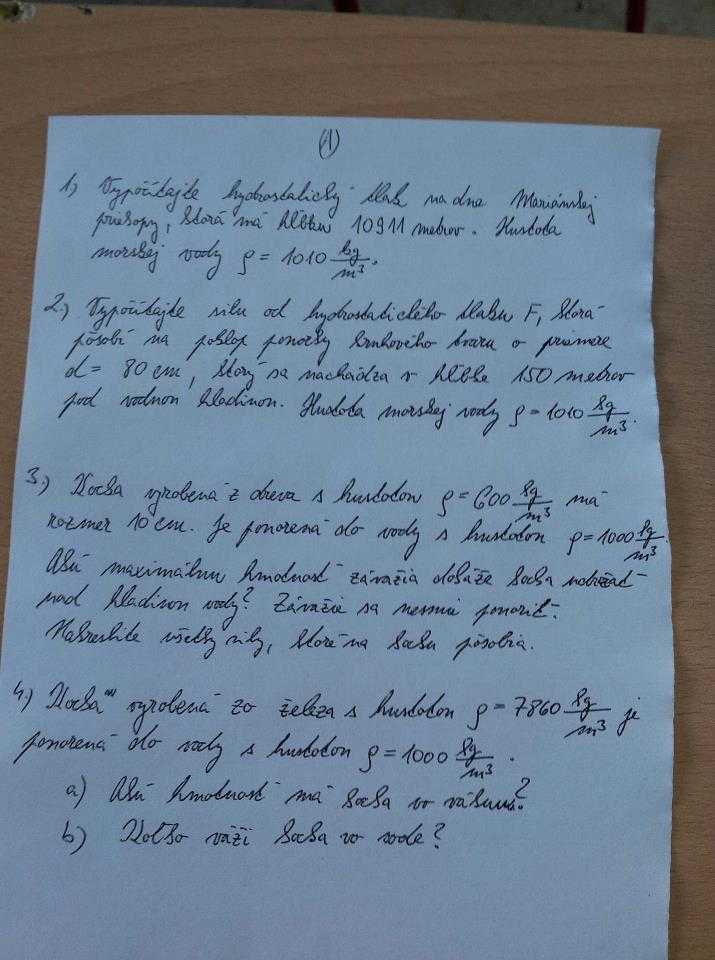 (A)
1) Vypočítajte hydrostatický tlak na dne Mariánskej
priekopy, ktorá má hĺbku 10911 metrov. Hustota
morskej vody ρ = 1010 kg/m³.
2.) Vypočítajte silu od hydrostatického tlaku F, ktorá
pôsobí na poklop ponorky kruhového tvaru o priemere
d = 80 cm, ktorý sa nachádza v hĺbke 150 metrov
pod vodnou hladinou. Hustota morskej vody ρ = 1010 kg/m³.
3.) Kocka vyrobená z dreva s hustotou ρ = 600 kg/m³ má
rozmer 10 cm. Je ponorená do vody s hustotou ρ = 1000 kg/m³.
Akú maximálnu hmotnosť závažia dokáže kocka udržať
nad hladinou vody? Závažie sa nesmie ponoriť.
Nakreslite všetky sily, ktoré na kocku pôsobia.
4.) Kocka vyrobená zo železa s hustotou ρ = 7860 kg/m³ je
ponorená do vody s hustotou ρ = 1000 kg/m³.
a) Akú hmotnosť má kocka vo vákuu?
b) Koľko váži kocka vo vode?